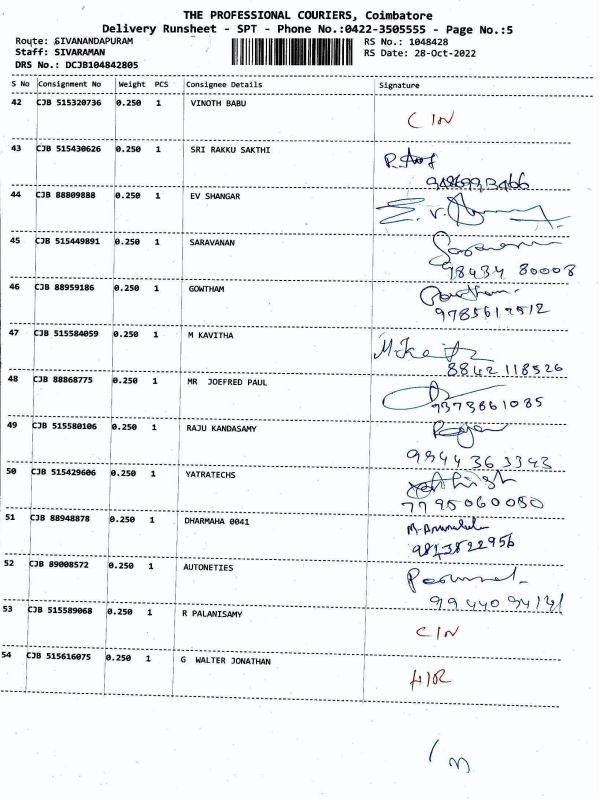 THE PROFESSIONAL COURIERS, Coimbatore
Delivery Runsheet - SPT - Phone No.:0422-3505555 - Page No.:5
Route: SIVANANDAPURAM RS No.: 1048428
Staff: SIVARAMAN RS Date: 28-Oct-2022
DRS No.: DCJB104842805
S No Consignment No Weight PCS Consignee Details Signature
42 CJB 515320736 0.250 1 VINOTH BABU
C/N
43 CJB 515430626 0.250 1 SRI RAKKU SAKTHI
44 CJB 88809888 0.250 1 EV SHANGAR
45 CJB 515449891 0.250 1 SARAVANAN
98434 80008
46 CJB 88959186 0.250 1 GOWTHAM
9785612512
47 CJB 515584059 0.250 1 M KAVITHA
8842118526
48 CJB 88868775 0.250 1 MR JOEFRED PAUL
7373861085
49 CJB 515580106 0.250 1 RAJU KANDASAMY
9944 363343
50 CJB 515429606 0.250 1 YATRATECHS
7795060050
51 CJB 88948878 0.250 1 DHARMAHA 0041
52 CJB 89008572 0.250 1 AUTONETIES
53 CJB 515589068 0.250 1 R PALANISAMY
C/N
54 CJB 515616075 0.250 1 G WALTER JONATHAN